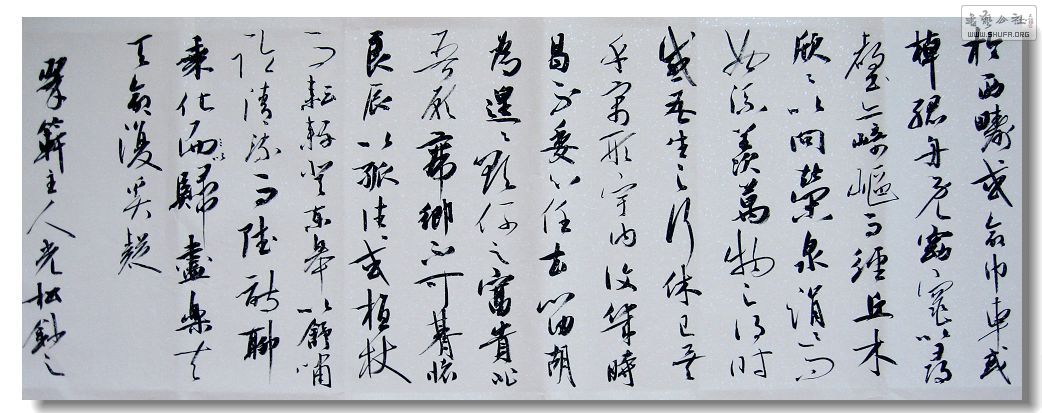 於西疇或命巾車或
棹孤舟既窈窕以尋
壑亦崎嶇而經丘木
欣欣以向榮泉涓涓而
始流羨萬物之得時
感吾生之行休已矣
乎寓形宇內復幾時
曷不委心任去留胡
為遑遑欲何之富貴非
吾願帝鄉不可期懷
良辰以孤往或植杖
而耘耔登東皋以舒嘯
臨清流而賦詩聊
乘化以歸盡樂夫
天命復奚疑
主人光松鈔之
書藝公社
WWW.SHUFA.ORG